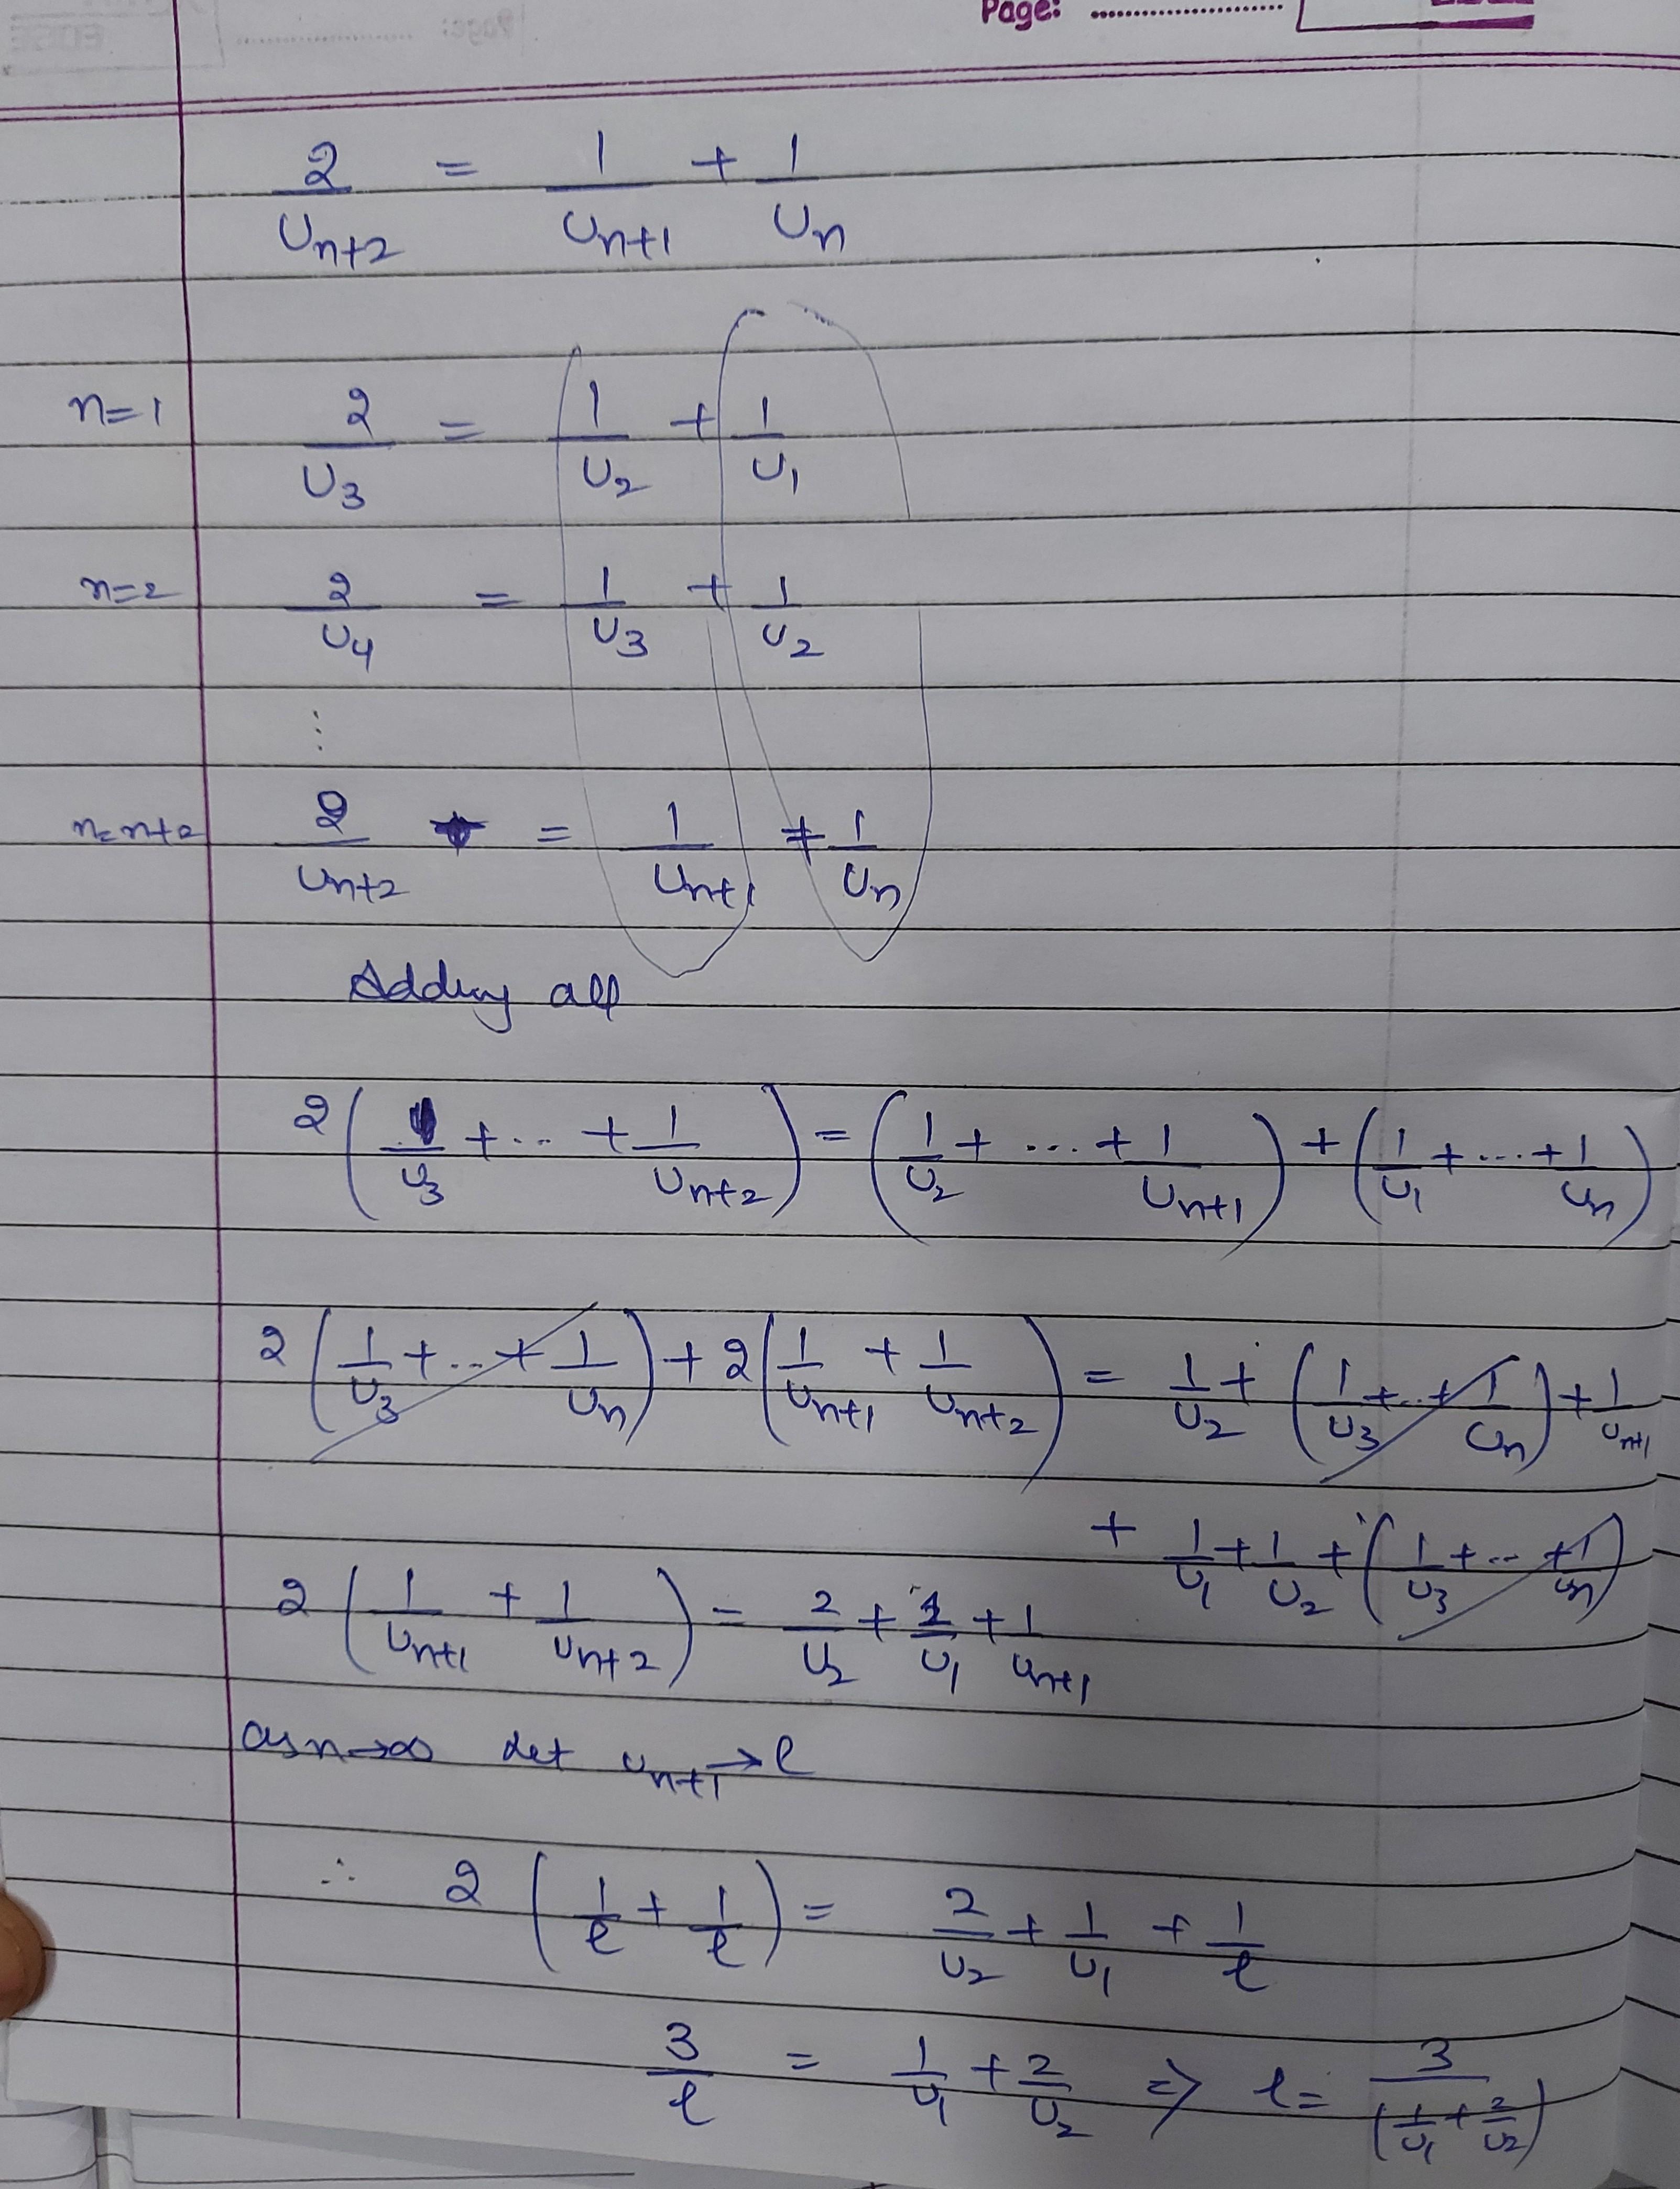 Page: ....................
2/U_{n+2} = 1/U_{n+1} + 1/U_n
n=1 2/U_3 = 1/U_2 + 1/U_1
n=2 2/U_4 = 1/U_3 + 1/U_2
⋮
n=n+2 2/U_{n+2} = 1/U_{n+1} + 1/U_n
Adding all
2(1/U_3 + ... + 1/U_{n+2}) = (1/U_2 + ... + 1/U_{n+1}) + (1/U_1 + ... + 1/U_n)
2(1/U_3 + ... + 1/U_n) + 2(1/U_{n+1} + 1/U_{n+2}) = 1/U_2 + (1/U_3 + ... + 1/U_n) + 1/U_{n+1}
+ 1/U_1 + 1/U_2 + (1/U_3 + ... + 1/U_n)
2(1/U_{n+1} + 1/U_{n+2}) = 2/U_2 + 1/U_1 + 1/U_{n+1}
as n→∞ let U_{n+1} → l
∴ 2(1/l + 1/l) = 2/U_2 + 1/U_1 + 1/l
3/l = 1/U_1 + 2/U_2 ⇒ l = 3/(1/U_1 + 2/U_2)